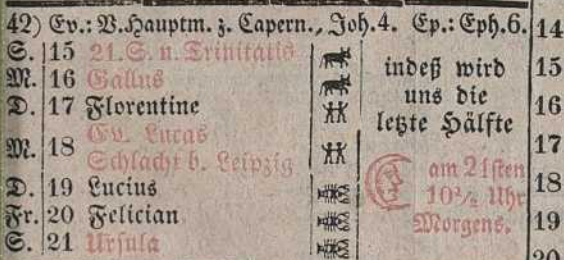 42) Ev.: V. Hauptm. z. Capern., Joh. 4. Ep.: Eph. 6.
S. 15 21. S. n. Trinitatis
M. 16 Gallus
D. 17 Florentine
M. 18 Ev. Lucas
Schlacht b. Leipzig
D. 19 Lucius
Fr. 20 Felician
S. 21 Ursula
indeß wird
uns die
letzte Hälfte
am 21sten
10½ Uhr
Morgens.
14
15
16
17
18
19
20